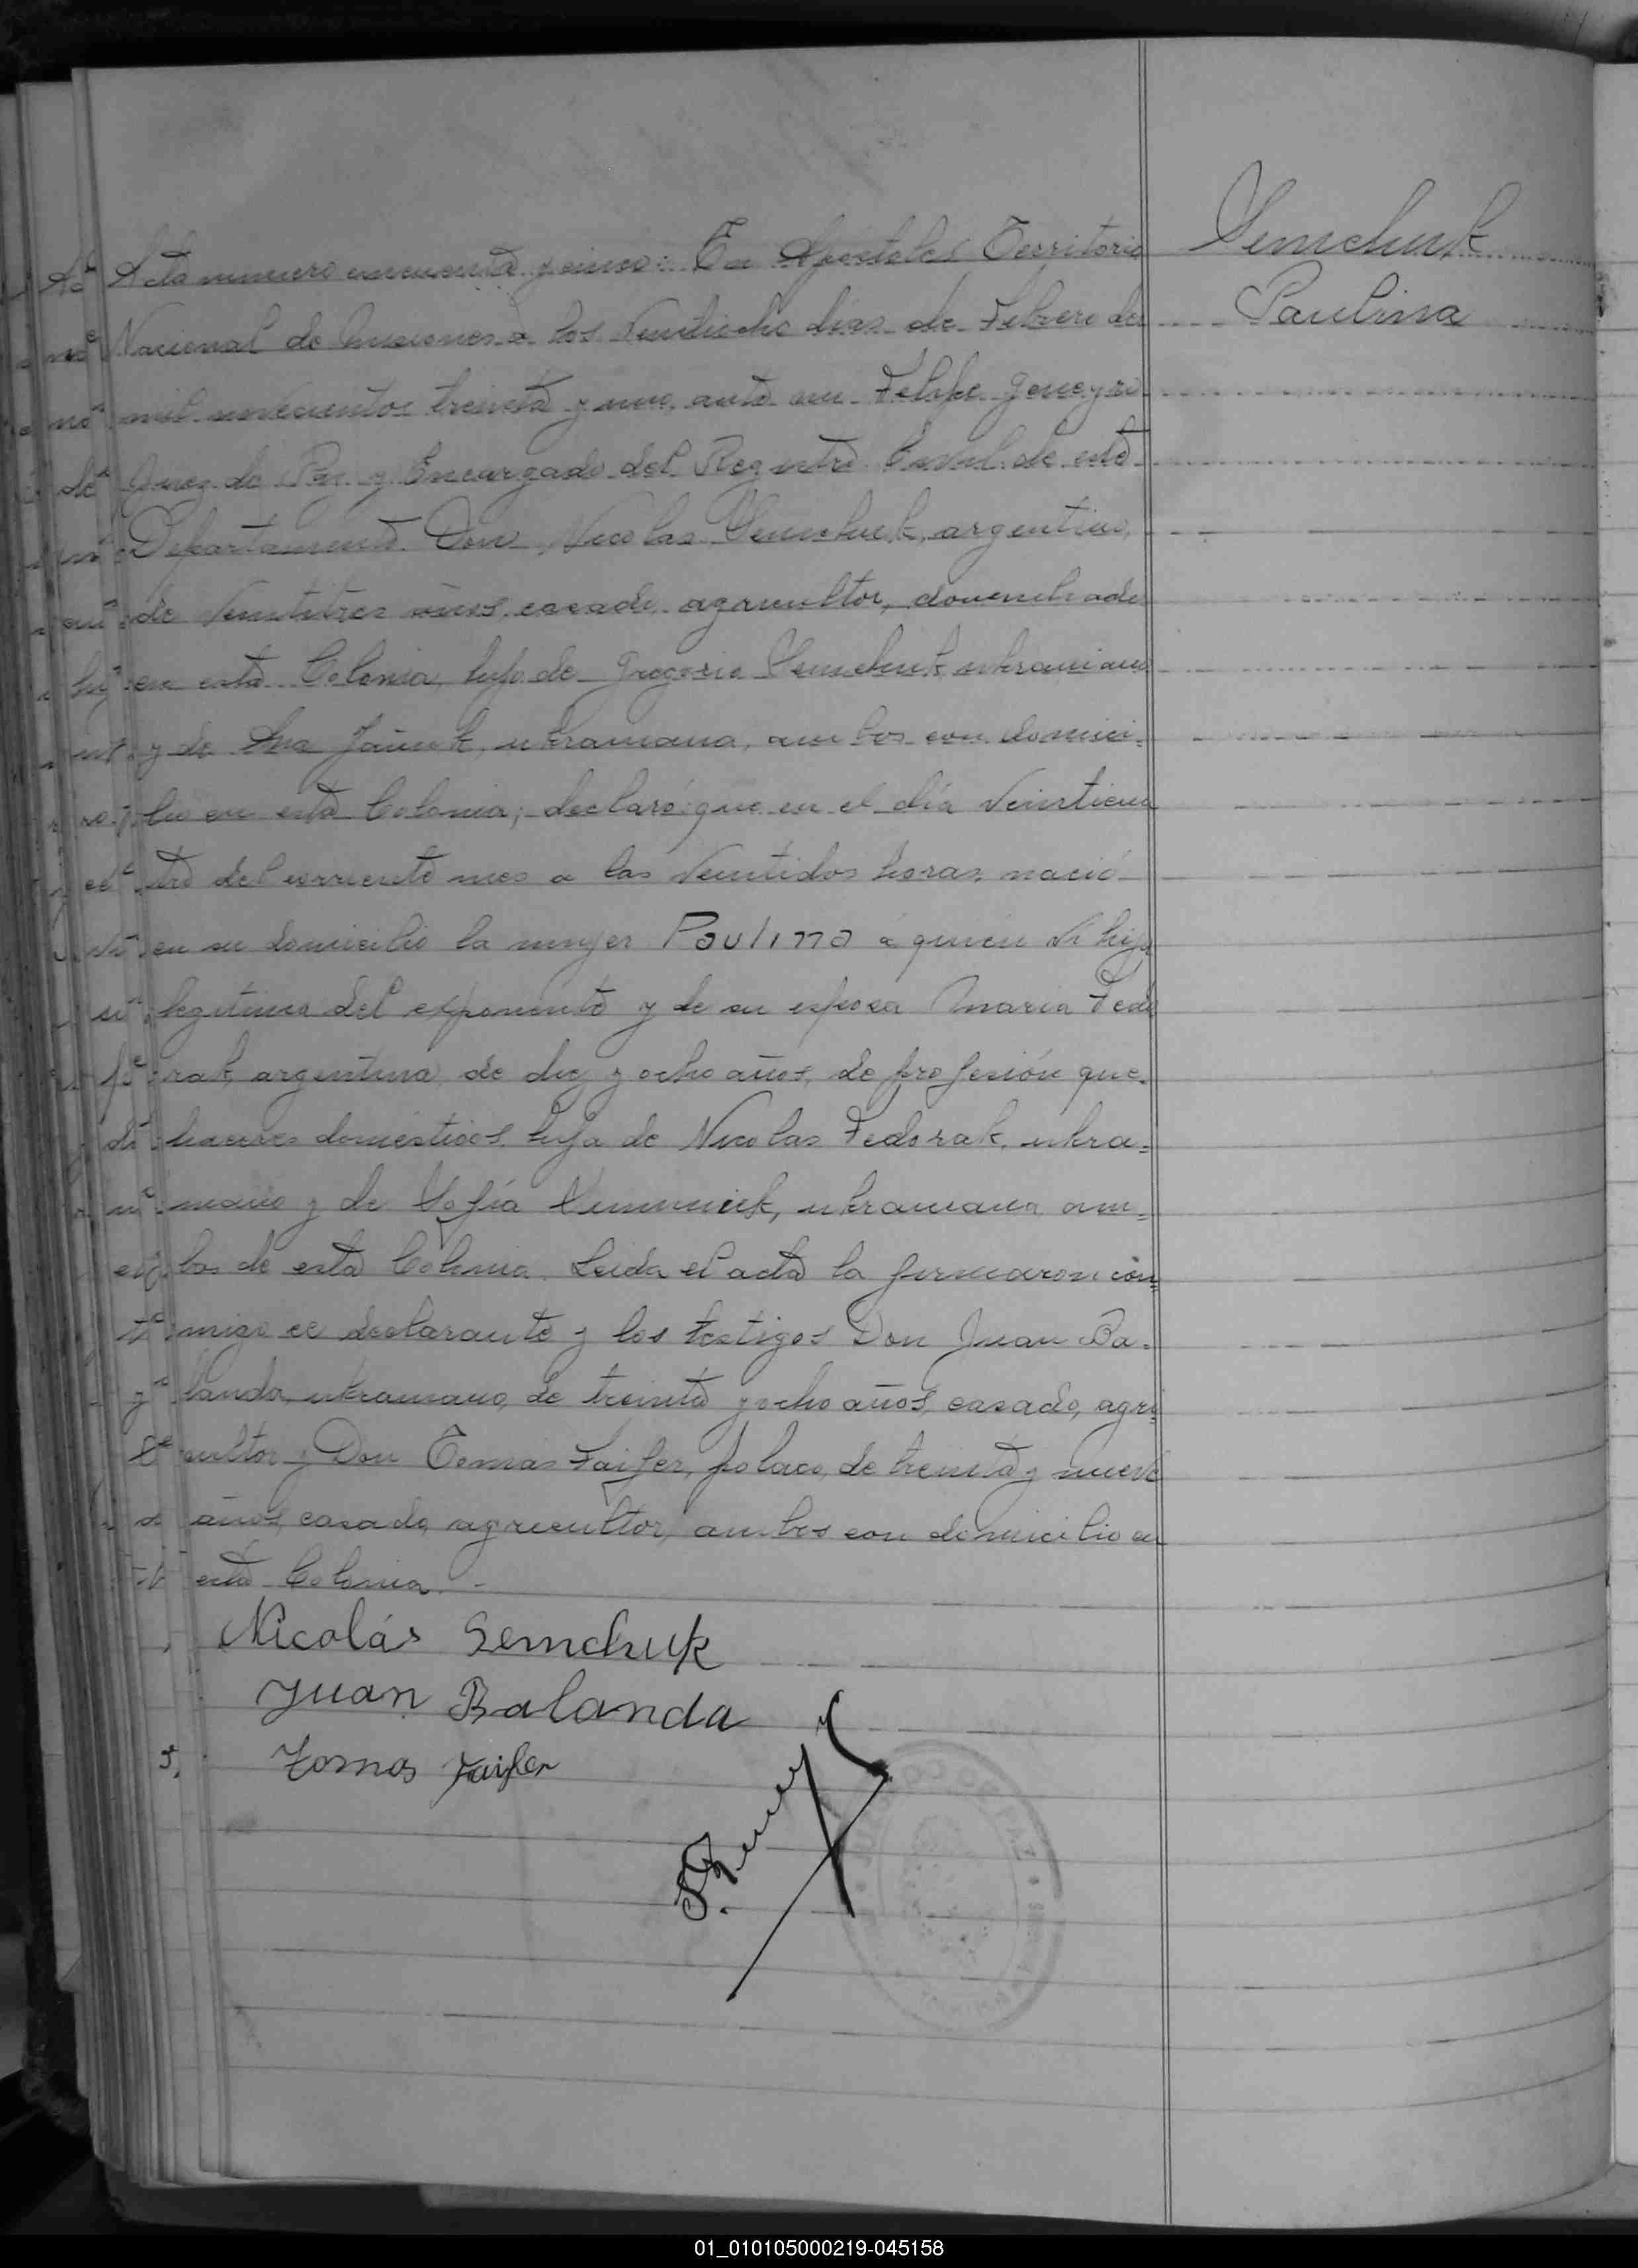 Semchuk
Paulina
Acta numero cincuenta y cinco: En Apostoles Territorio
Nacional de Misiones a los Veintiocho dias de Febrero de
mil novecientos treinta y uno, ante mi Felipe
Juez de Paz y Encargado del Registro Civil de este
Departamento Don Nicolas Semchuk, argentino,
de Veintitres años, casado, agricultor, domiciliado
en esta Colonia, hijo de Gregorio Semchuk, ukraniano
y de Ana ukraniana, ambos con domici-
lio en esta Colonia; declaró: que en el día Veinticua
tro del corriente mes a las Veintidos horas, nació
en su domicilio la mujer Paulina a quien vi hija
legitima del exponente y de su esposa Maria Fedo
rak, argentina, de diez y ocho años, de profesión que-
haceres domésticos, hija de Nicolas Fedorak, ukra-
niano y de Sofía ukraniana, am-
bos de esta Colonia. Leida el acta la firmaron con
migo el declarante y los testigos Don Juan Ba-
landa, ukraniano, de treinta y ocho años, casado, agri
cultor y Don Tomas Faifer, polaco, de treinta y nueve
años, casado, agricultor, ambos con domicilio en
esta Colonia.-
Nicolás Semchuk
Juan Balanda
Tomas Faifer
01_010105000219-045158